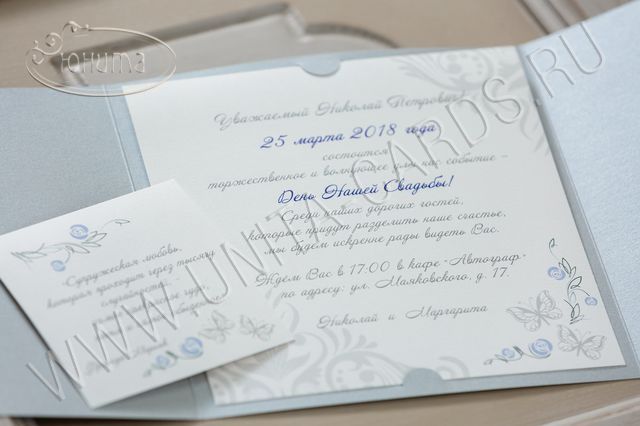 Юнита
Уважаемый Николай Петрович!
25 марта 2018 года
состоится
торжественное и волнующее для нас событие -
День Нашей Свадьбы!
Среди наших дорогих гостей,
которые придут разделить наше счастье,
мы будем искренне рады видеть Вас.
Ждем Вас в 17:00 в кафе «Автограф»
по адресу: ул. Маяковского, д. 17.
Николай и Маргарита
"Супружеская любовь,
которая проходит через тысячу
случайностей,
самое чудо,
WWW.UNITA-CARDS.RU